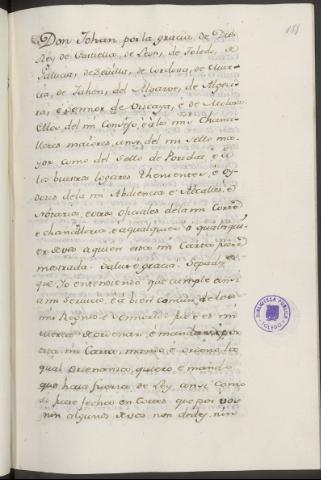 188
Don Johan por la gracia de Dios
Rey de Castiella, de Leon, de Toledo, de
Galicia, de Sevilla, de Cordova, de Mur-
cia, de Jahen, del Algarve, de Algeci-
ra, é Sennor de Vizcaya, é de Molina
A los del mi Consejo, é á los mis Chanci-
lleres maiores, ansi del mi sello ma-
yor como del sello de Poridat, é á
los buenos logares Thenientes, é Oy-
dores de la mi Abdiencia é Alcalles, é
Notarios, é otros oficiales de la mi Corte
é chancilleria, é a qualquier o qualesqui-
er de vos a quien esta mi Carta fuere
mostrada. Salut é gracia. Sepades
que Yo entendiendo que cumple ansi
a mi servicio, é a bien comun de los
mis Regnos é Sennorios que es mi
merced de ordenar, é mando por
esta mi Carta, mando é ordeno, la
qual ordenanza, quiero, é mando
que haya fuerza de Ley, ansi como
si fuese fecha en Cortes, que por vos
nin algunos de vos non dedes, nin
BIBLIOTECA PUBLICA
TOLEDO